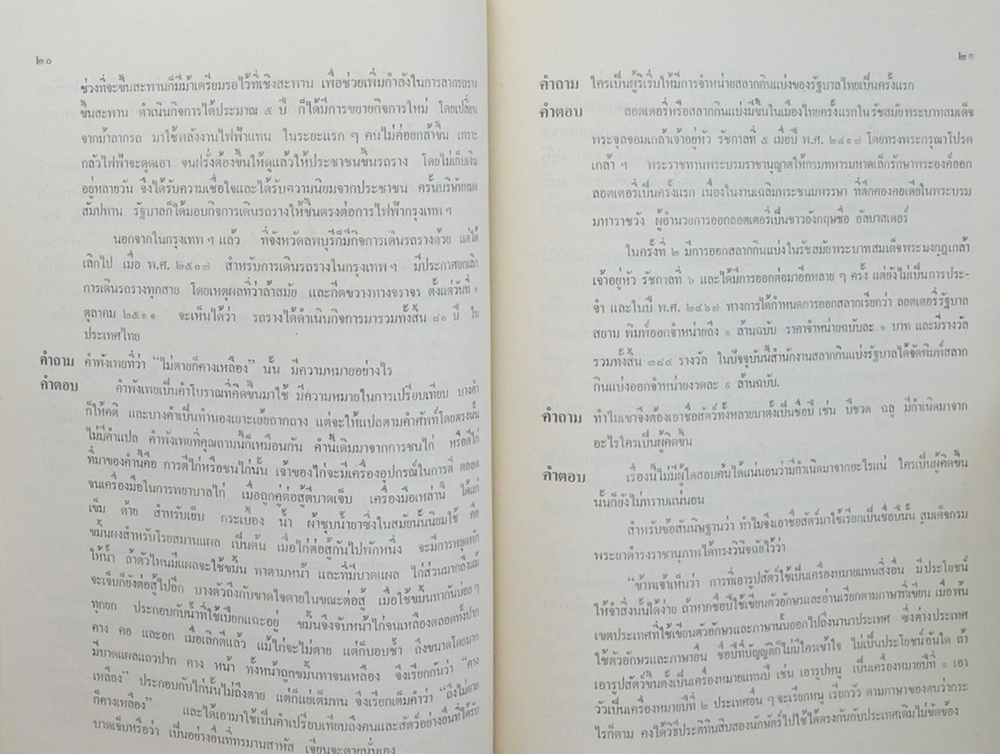 ๒๐
ช่วงที่จะขึ้นสะพานก็มีม้าเตรียมรอไว้ที่เชิงสะพาน เพื่อช่วยเพิ่มกำลังในการลากรถราง
ขึ้นสะพาน ดำเนินกิจการได้ประมาณ ๕ ปี ก็ได้มีการขยายกิจการใหม่ โดยเปลี่ยน
จากม้าลากรถ มาใช้พลังงานไฟฟ้าแทน ในระยะแรก ๆ คนไม่ค่อยกล้าขึ้น เพราะ
กลัวไฟฟ้าจะดูดเอา จนฝรั่งต้องขึ้นให้ดูแล้วให้ประชาชนขึ้นรถราง โดยไม่เก็บเงิน
อยู่หลายวัน จึงได้รับความเชื่อใจและได้รับความนิยมจากประชาชน ครั้นบริษัทหมด
สัมปทาน รัฐบาลก็ได้มอบกิจการเดินรถรางให้ขึ้นตรงต่อการไฟฟ้ากรุงเทพ ฯ
นอกจากในกรุงเทพ ฯ แล้ว ที่จังหวัดลพบุรีก็มีกิจการเดินรถรางด้วย แต่ได้
เลิกไป เมื่อ พ.ศ. ๒๕๐๗ สำหรับการเดินรถรางในกรุงเทพ ฯ มีประกาศยกเลิก
การเดินรถรางทุกสาย โดยเหตุผลที่ว่าล้าสมัย และกีดขวางทางจราจร ตั้งแต่วันที่ ๑
ตุลาคม ๒๕๑๑ จะเห็นได้ว่า รถรางได้ดำเนินกิจการมารวมทั้งสิ้น ๘๐ ปี ใน
ประเทศไทย
คำถาม คำพังเพยที่ว่า “ไม่ตายก็คางเหลือง” นั้น มีความหมายอย่างไร
คำตอบ คำพังเพยเป็นคำโบราณที่คิดขึ้นมาใช้ มีความหมายในการเปรียบเทียบ บางคำ
ก็ให้คติ และบางคำเป็นทำนองเยาะเย้ยถากถาง แต่จะให้แปลตามคำศัพท์ที่โดยตรงนั้น
ไม่มีคำแปล คำพังเพยที่คุณถามนี้ก็เหมือนกัน คำนี้เดิมมาจากการชนไก่ หรือตีไก่
ที่มาของคำนี้คือ การตีไก่หรือชนไก่นั้น เจ้าของไก่จะมีเครื่องอุปกรณ์ในการตี ตลอด
จนเครื่องมือในการพยาบาลไก่ เมื่อถูกคู่ต่อสู้ตีบาดเจ็บ เครื่องมือเหล่านี้ ได้แก่
เข็ม ด้าย สำหรับเย็บ กระเบื้อง น้ำ ผ้าชุบน้ำยาซึ่งในสมัยนั้นนิยมใช้ คือ
ขมิ้นผงสำหรับโรยสมานแผล เป็นต้น เมื่อไก่ต่อสู้กันไปพักหนึ่ง จะมีการหยุดพัก
ให้น้ำ ถ้าตัวไหนมีแผลจะใช้ขมิ้น ทาตามหน้า และที่มีบาดแผล ไก่ส่วนมากถึงแม้
จะเจ็บก็ยังต่อสู้ไปอีก บางตัวถึงกับขาดใจตายในขณะต่อสู้ เมื่อใช้ขมิ้นทากันบ่อย ๆ
ทุกยก ประกอบกับน้ำที่ใช้เปียกแฉะอยู่ ขมิ้นจึงจับหน้าไก่จนเหลืองตลอดทั้งปาก
คาง คอ และอก เมื่อเลิกตีแล้ว แม้ไก่จะไม่ตาย แต่ก็บอบช้ำ ถึงขนาดโดยมาก
มีบาดแผลแถวปาก คาง หน้า ทั้งหน้าถูกขมิ้นทาจนเหลือง จึงเรียกกันว่า “คาง
เหลือง” ประกอบกับไก่นั้นไม่ถึงตาย แต่ก็แย่เต็มทน จึงเรียกเต็มคำว่า “ถึงไม่ตาย
ก็คางเหลือง” และได้เอามาใช้เป็นคำเปรียบเทียบถึงคนและสัตว์อย่างอื่นที่ได้รับ
บาดเจ็บหรือว่า เป็นอย่างอื่นที่ทรมานสาหัส เจียนจะตายนั่นเอง
๒๑
คำถาม ใครเป็นผู้ริเริ่มให้มีการจำหน่ายสลากกินแบ่งของรัฐบาลไทยเป็นครั้งแรก
คำตอบ ลอตเตอรี่หรือสลากกินแบ่งมีขึ้นในเมืองไทยครั้งแรกในรัชสมัยพระบาทสมเด็จ
พระจุลจอมเกล้าเจ้าอยู่หัว รัชกาลที่ ๕ เมื่อปี พ.ศ. ๒๔๑๗ โดยทรงพระกรุณาโปรด
เกล้า ฯ พระราชทานพระบรมราชานุญาตให้กรมทหารมหาดเล็กรักษาพระองค์ออก
ลอตเตอรี่เป็นครั้งแรก เนื่องในงานเฉลิมพระชนมพรรษา ที่ตึกคองคอเดียในพระบรม
มหาราชวัง ผู้อำนวยการออกลอตเตอรี่เป็นชาวอังกฤษชื่อ อัลบาสเตอร์
ในครั้งที่ ๒ มีการออกสลากกินแบ่งในรัชสมัยพระบาทสมเด็จพระมงกุฎเกล้า
เจ้าอยู่หัว รัชกาลที่ ๖ และได้มีการออกต่อมาอีกหลาย ๆ ครั้ง แต่ยังไม่เป็นการประ-
จำ และในปี พ.ศ. ๒๔๖๗ ทางการได้กำหนดการออกสลากเรียกว่า ลอตเตอรี่รัฐบาล
สยาม พิมพ์ออกจำหน่ายถึง ๑ ล้านฉบับ ราคาจำหน่ายฉบับละ ๑ บาท และมีรางวัล
รวมทั้งสิ้น ๓๘๔ รางวัล ในปัจจุบันนี้สำนักงานสลากกินแบ่งรัฐบาลได้จัดพิมพ์สลาก
กินแบ่งออกจำหน่ายงวดละ ๙ ล้านฉบับ.
คำถาม ทำไมเขาจึงต้องเอาชื่อสัตว์ทั้งหลายมาตั้งเป็นชื่อปี เช่น ปีชวด ฉลู มีกำเนิดมาจาก
อะไรใครเป็นผู้คิดขึ้น
คำตอบ เรื่องนี้ไม่มีผู้ใดสอบค้นได้แน่นอนว่ามีกำเนิดมาจากอะไรแน่ ใครเป็นผู้คิดขึ้น
นั้นก็ยังไม่ทราบแน่นอน
สำหรับข้อสันนิษฐานว่า ทำไมจึงเอาชื่อสัตว์มาใช้เรียกเป็นชื่อปีนั้น สมเด็จกรม
พระยาดำรงราชานุภาพได้ทรงวินิจฉัยไว้ว่า
“ข้าพเจ้าเห็นว่า การที่เอารูปสัตว์ใช้เป็นเครื่องหมายแทนสิ่งอื่น มีประโยชน์
ให้จำสิ่งนั้นได้ง่าย ถ้าหากชื่อปีใช้เขียนตัวอักษรและอ่านเรียกตามภาษาที่เขียน เมื่อพ้น
เขตประเทศที่ใช้เขียนตัวอักษรและภาษานั้นออกไปถึงนานาประเทศ ซึ่งต่างประเทศ
ใช้ตัวอักษรและภาษาอื่น ชื่อปีที่บัญญัติก็ไม่มีใครเข้าใจ ไม่เป็นประโยชน์อันใด ถ้า
เอารูปสัตว์ขึ้นตั้งเป็นเครื่องหมายแทนปี เช่น เอารูปหนู เป็นเครื่องหมายปีที่ ๑ เอา
วัวเป็นเครื่องหมายปีที่ ๒ ประเทศอื่น ๆ จะเรียกหนู เรียกวัว ตามภาษาของตนว่ากระ
ไรก็ตาม คงได้วิธีประทินสิบสองนักษัตร์ไปใช้ได้ตรงกันกับประเทศเดิมไม่ขัดข้อง